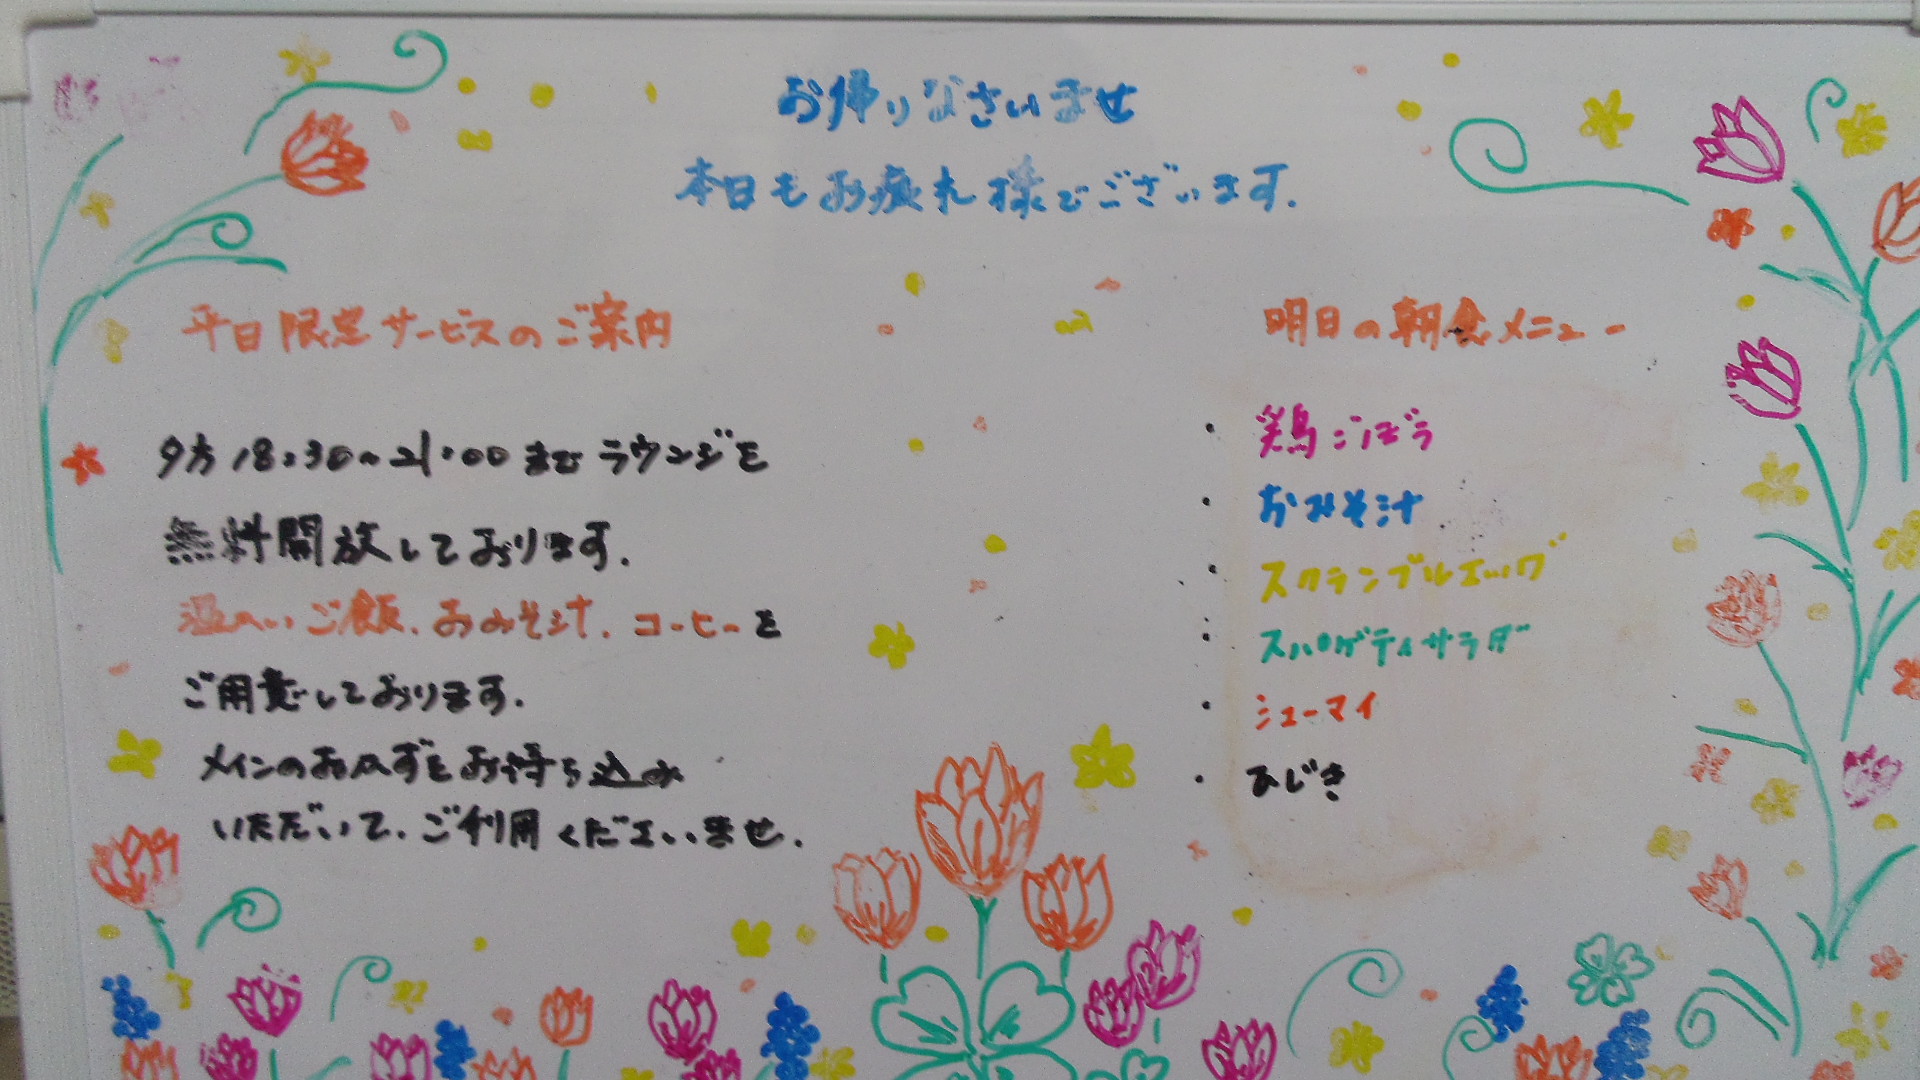 お帰りなさいませ
本日もお疲れ様でございます.
平日限定サービスのご案内
夕方18:30~21:00までラウンジを
無料開放しております.
温かいご飯.おみそ汁.コーヒーを
ご用意しております.
メインのおかずをお持ち込み
いただいて.ご利用くださいませ.
明日の朝食メニュー
・鶏ごぼう
・おみそ汁
・スクランブルエッグ
・スパゲティサラダ
・シューマイ
・ひじき